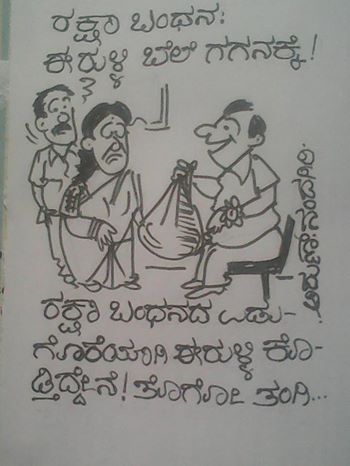 ರಕ್ಷಾ ಬಂಧನ:
ಈರುಳ್ಳಿ ಬೆಲೆ ಗಗನಕ್ಕೆ!
ಅರುಣ್ ನಂದಗಿರಿ.
ರಕ್ಷಾ ಬಂಧನದ ಉಡು-
ಗೊರೆಯಾಗಿ ಈರುಳ್ಳಿ ಕೊ-
ಡ್ತಿದ್ದೇನೆ! ತೊಗೋ ತಂಗಿ...